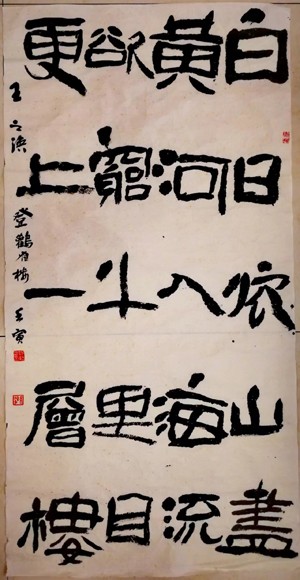 白日依山盡
黃河入海流
欲窮千里目
更上一層樓
王之渙 登鸛雀樓 壬寅